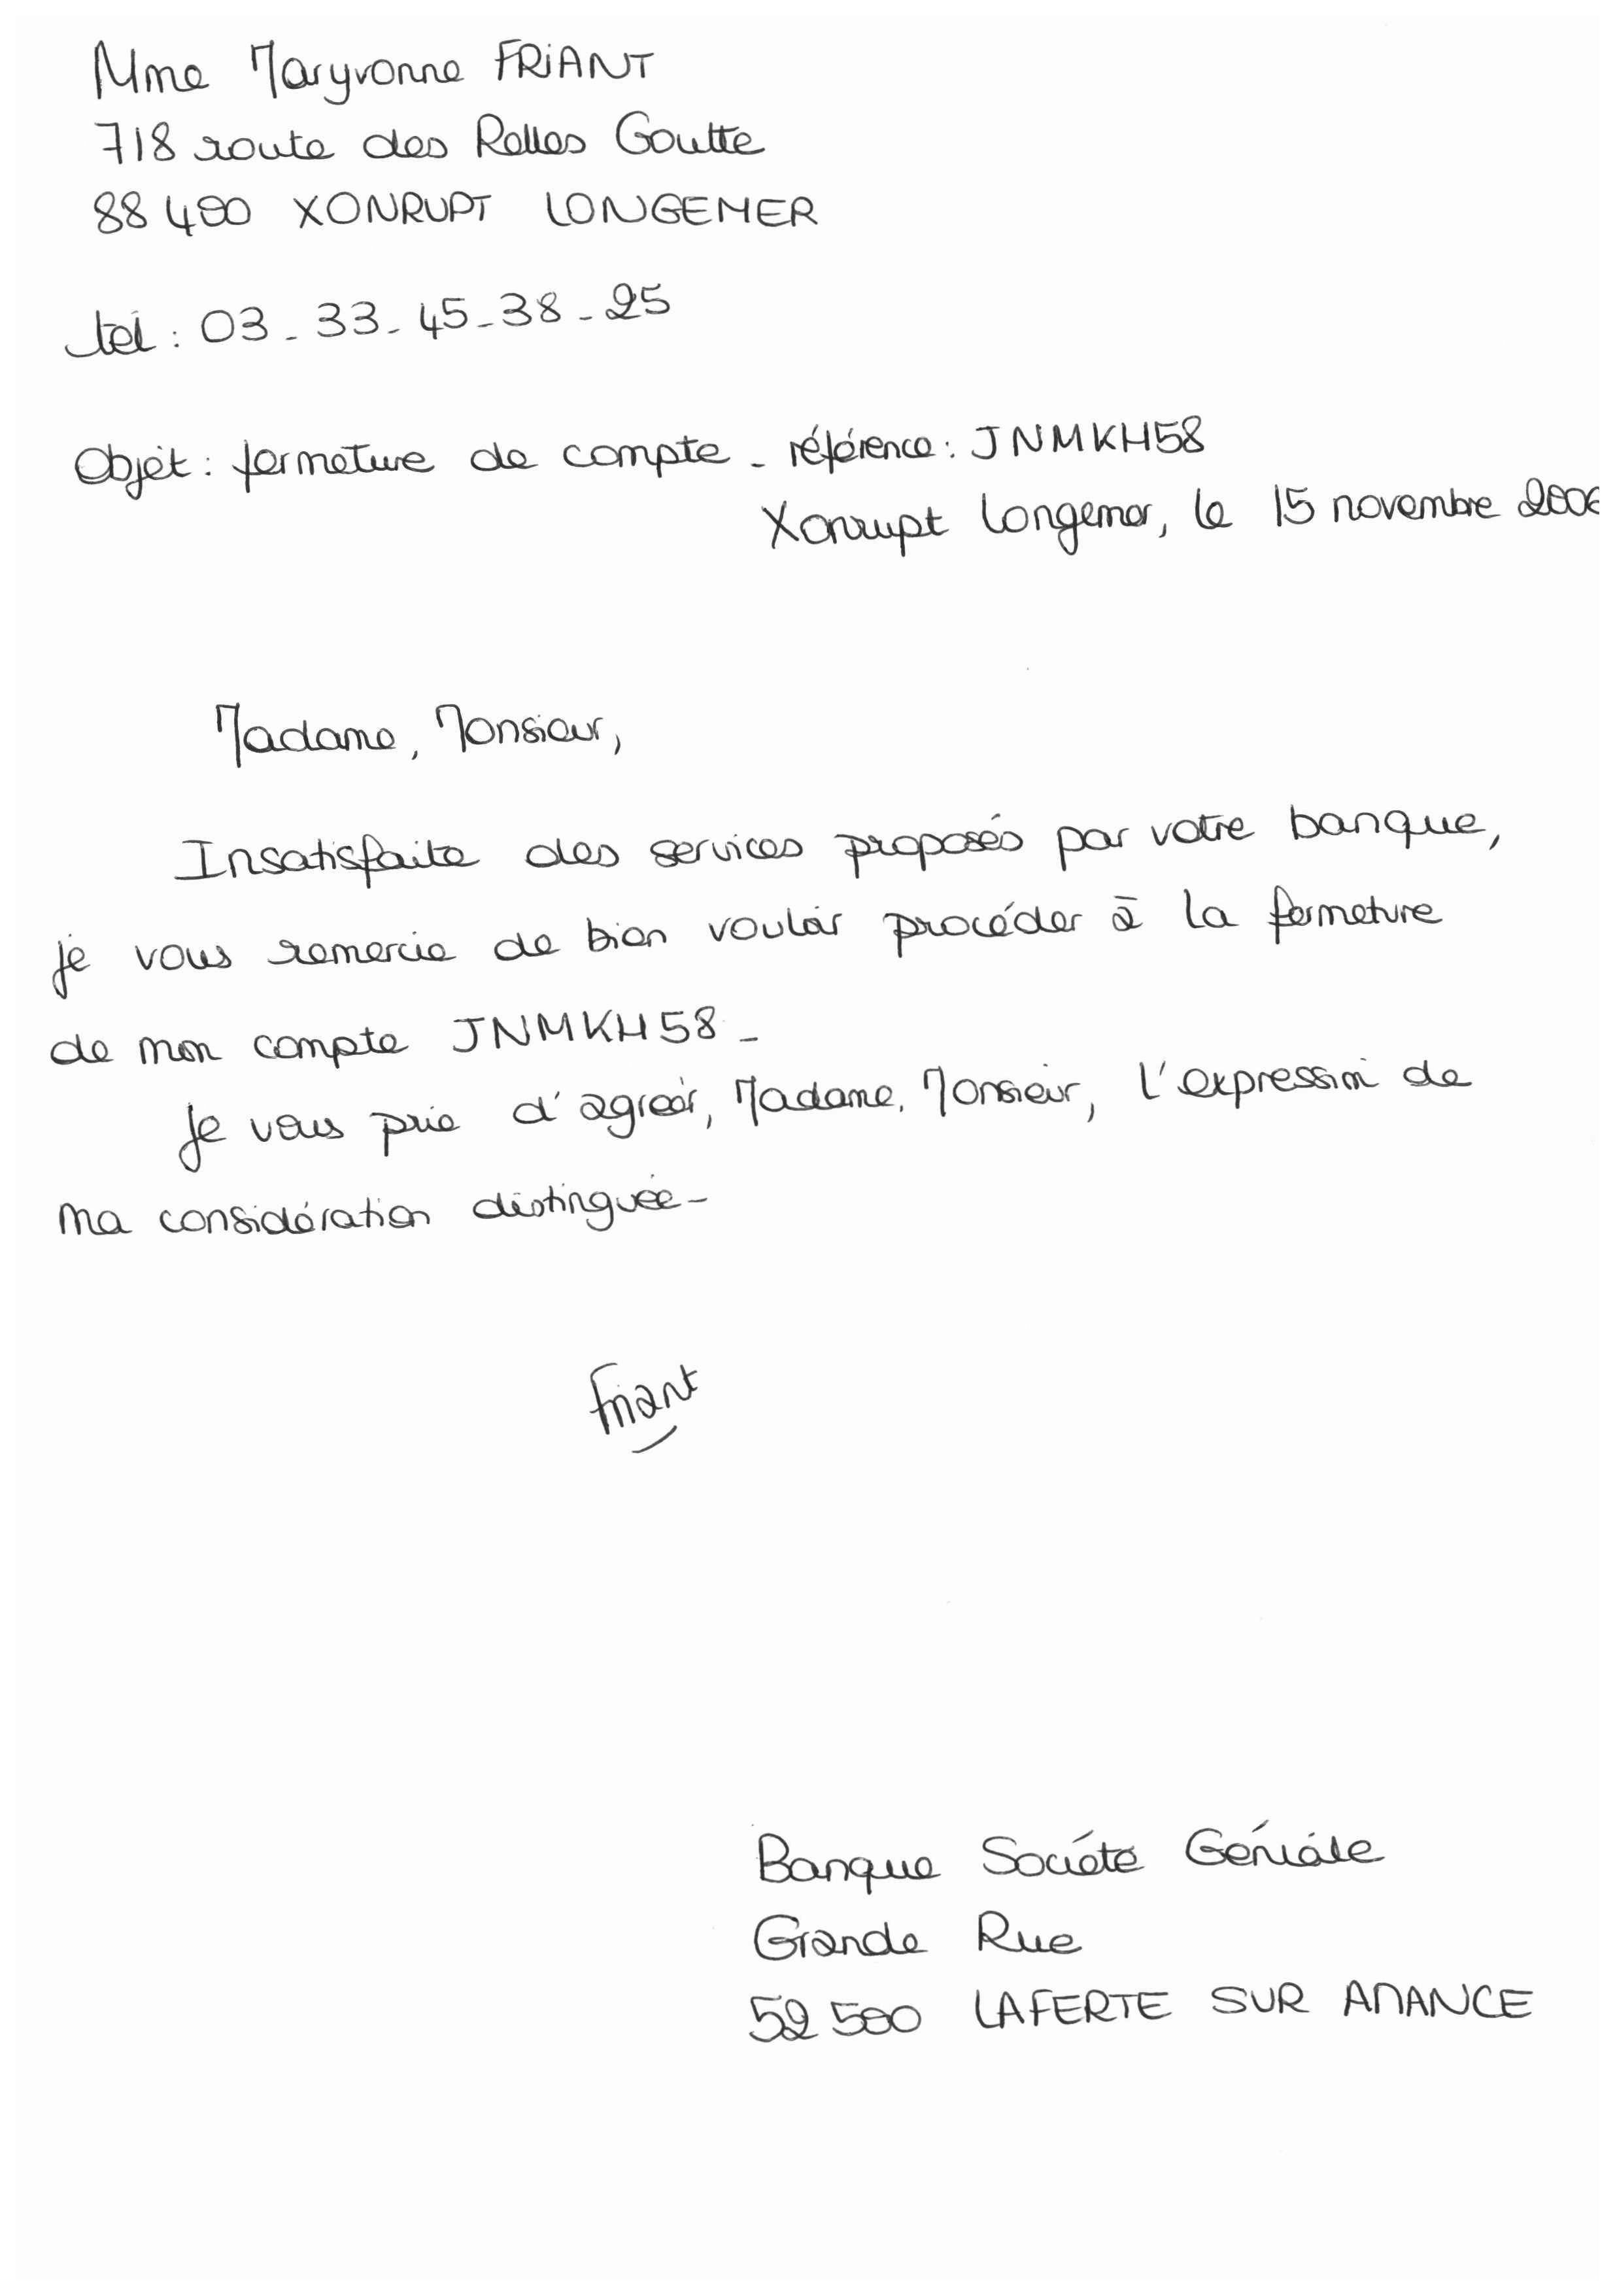 Mme Maryvonne FRIANT
718 route des Relles Goutte
88 400 XONRUPT LONGEMER
tel : 03 _ 33 _ 45 _ 38 _ 25
Objet : fermeture de compte _ référence : JNMKH58
Xonrupt Longemer, le 15 novembre 2006
Madame, Monsieur,
Insatisfaite des services proposés par votre banque,
je vous remercie de bien vouloir procéder à la fermeture
de mon compte JNMKH58 _
Je vous prie d'agréer, Madame, Monsieur, l'expression de
ma considération distinguée _
Friant
Banque Société Géniale
Grande Rue
52 500 LAFERTE SUR AMANCE